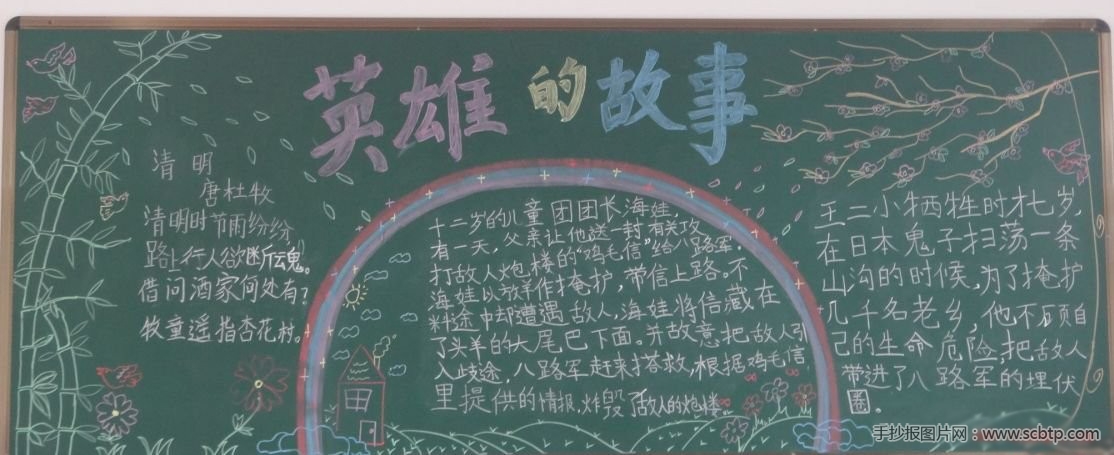 英雄的故事
清明
唐杜牧
清明时节雨纷纷
路上行人欲断魂。
借问酒家何处有?
牧童遥指杏花村。
十二岁的儿童团团长海娃,
有一天,父亲让他送一封有关攻
打敌人炮楼的“鸡毛信”给八路军。
海娃以放羊作掩护,带信上路。不
料途中却遭遇敌人,海娃将信藏在
了头羊的大尾巴下面。并故意把敌人引
入歧途,八路军赶来搭救,根据鸡毛信
里提供的情报,炸毁了敌人的炮楼。
王二小牺牲时才七岁,
在日本鬼子扫荡一条
山沟的时候,为了掩护
几千名老乡,他不顾自
己的生命危险,把敌人
带进了八路军的埋伏
圈。
手抄报图片网:www.scbtp.com